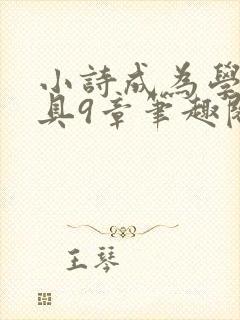 小詩成為學
具9章筆趣閱
王琴